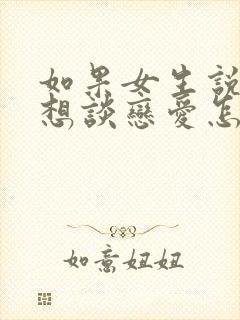 如果女生說
想談戀愛怎
如意妞妞